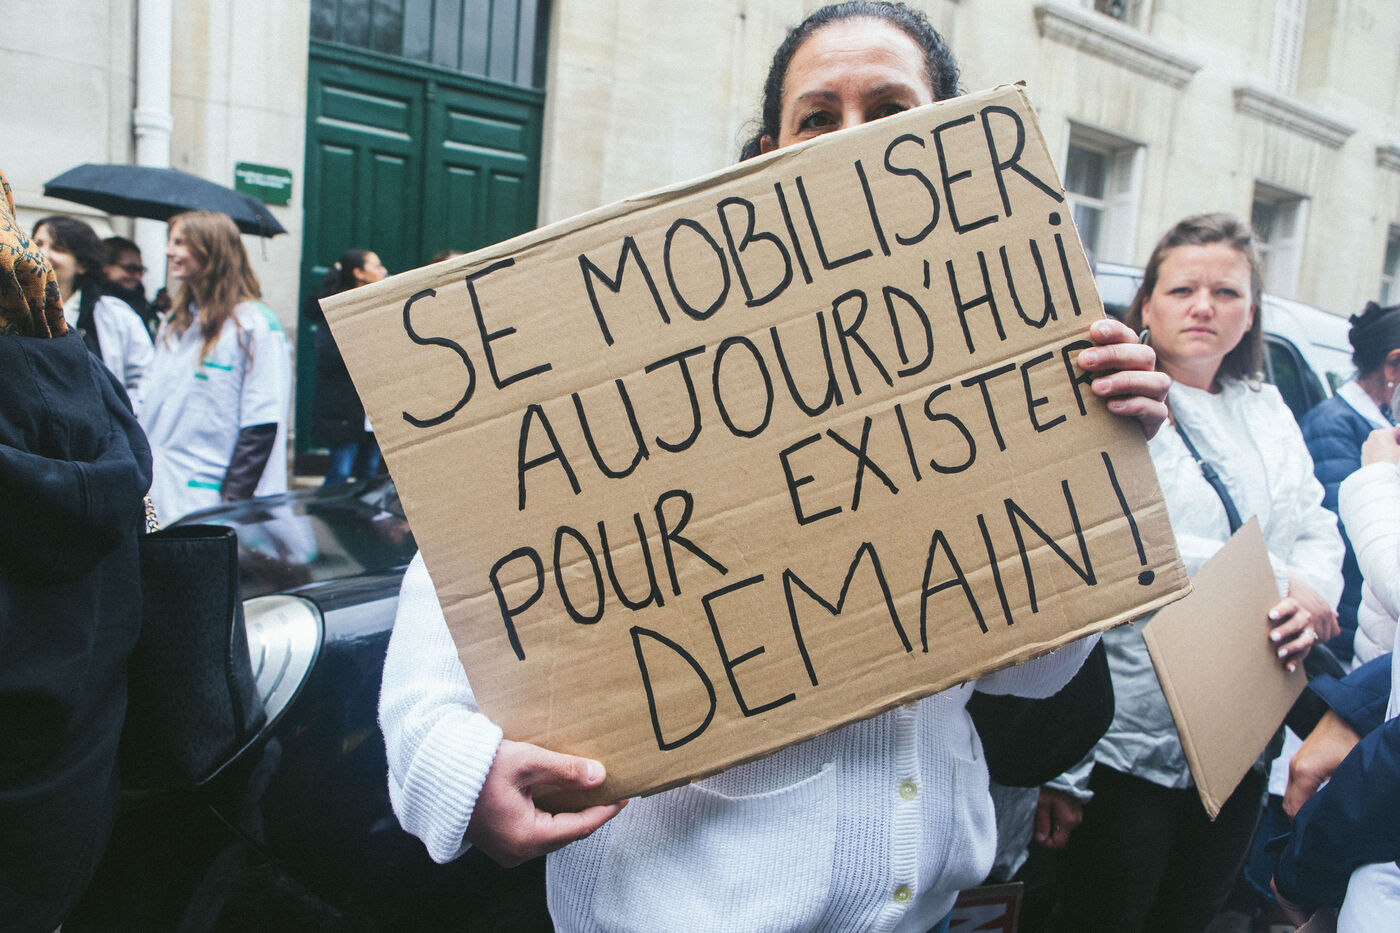 SE MOBILISER
AUJOURD'HUi
POUR EXISTER
DEMAIN !